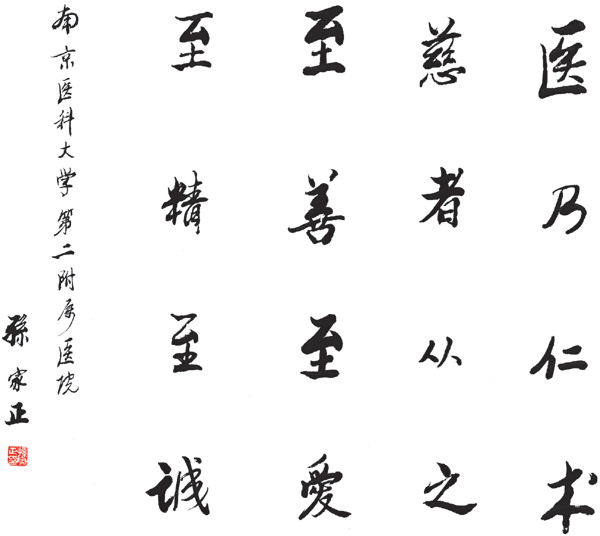 医乃仁术
慈者从之
至善至爱
至精至诚
南京医科大学第二附属医院
孫家正